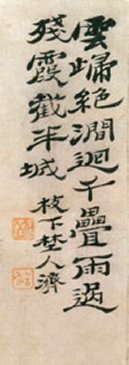 雲歸絕澗迴千疊雨過
殘霞截半城 枝下埜人濟